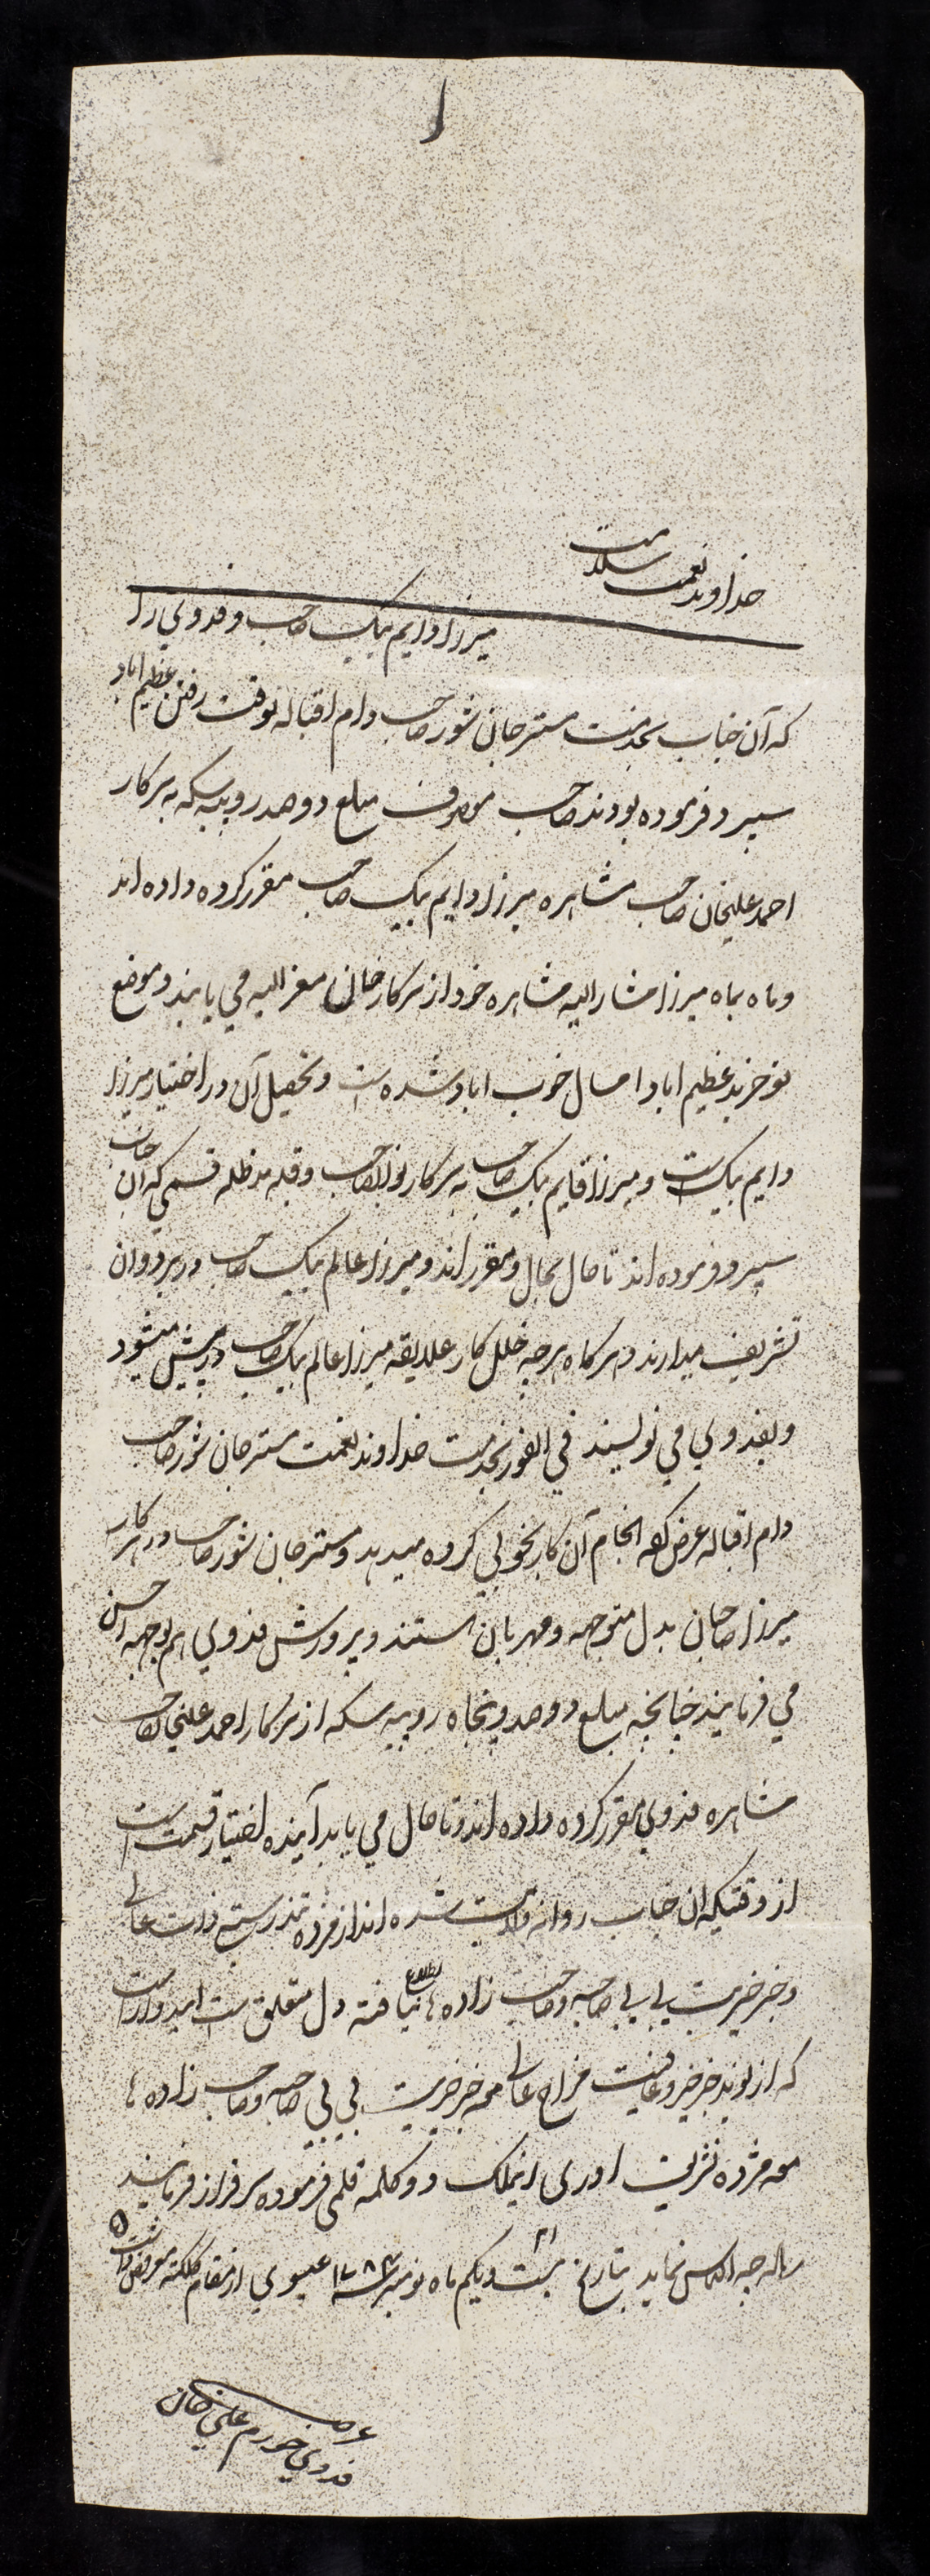 خداوند نعمت سلامت
میرزا دایم بیک صاحب و فدوی را
که آن جناب بخدمت مستر جان شور صاحب دام اقباله بوقت رفتن عظیم اباد
سپرد فرموده بودند صاحب موصوف مبلغ دو صد روپیه سکه به سرکار
احمد علیخان صاحب مشاهره میرزا دایم بیک صاحب مقرر کرده داده اند
و ماه بماه میرزا مشار الیه مشاهره خود از سرکار خان معز الیه می یابند و موضع
نو خرید عظیم اباد امسال خوب اباد شده است و تحصیل آن در اختیار میرزا
دایم بیک است و میرزا قایم بیک صاحب به سرکار نواب صاحب و قبله مد ظله قسمی که آن جناب
سپرد فرموده اند تا حال بحال و مقرر اند و میرزا عالم بیک صاحب در بردوان
تشریف میدارند و هرگاه هرچه خلل کار علاقه میرزا عالم بیک صاحب در پیش میشود
و بفدوی می نویسند فی الفور بخدمت خداوند نعمت مستر جان شور صاحب
دام اقباله عرض کرده انجام آن کار بخوبی کرده میدهد و مستر جان شور صاحب در هر کار
میرزا صاحبان بدل متوجه و مهربان هستند و پرورش فدوی هم بوجهه احسن
می فرمایند چنانچه مبلغ دو صد و پنجاه روپیه سکه از سرکار احمد علیخان صاحب
مشاهره فدوی مقرر کرده داده اند و تا حال می یابد آینده اختیار قسمت است
از وقتیکه ان جناب روانه ولایت شده اند از مژده تندرستی ذات عالی
و خبر خیریت بی بی صاحبه و صاحب زاده ها اطلاع نیافته دل متعلق است امیدوار است
که از نوید خبر خیر و عافیت مزاج عالی معه خبر خیریت بی بی صاحبه و صاحب زاده ها
معه مژده تشریف اوری اینملک دو کلمه قلمی فرموده سرفراز فرمایند
زیاده چه التماس نماید بتاریخ بیست و یکم ۲۱ ماه نومبر سنه ۱۷۸۴ عیسوی از مقام کلکته معروض داشت
عرضی
فدوی خورم علی خان